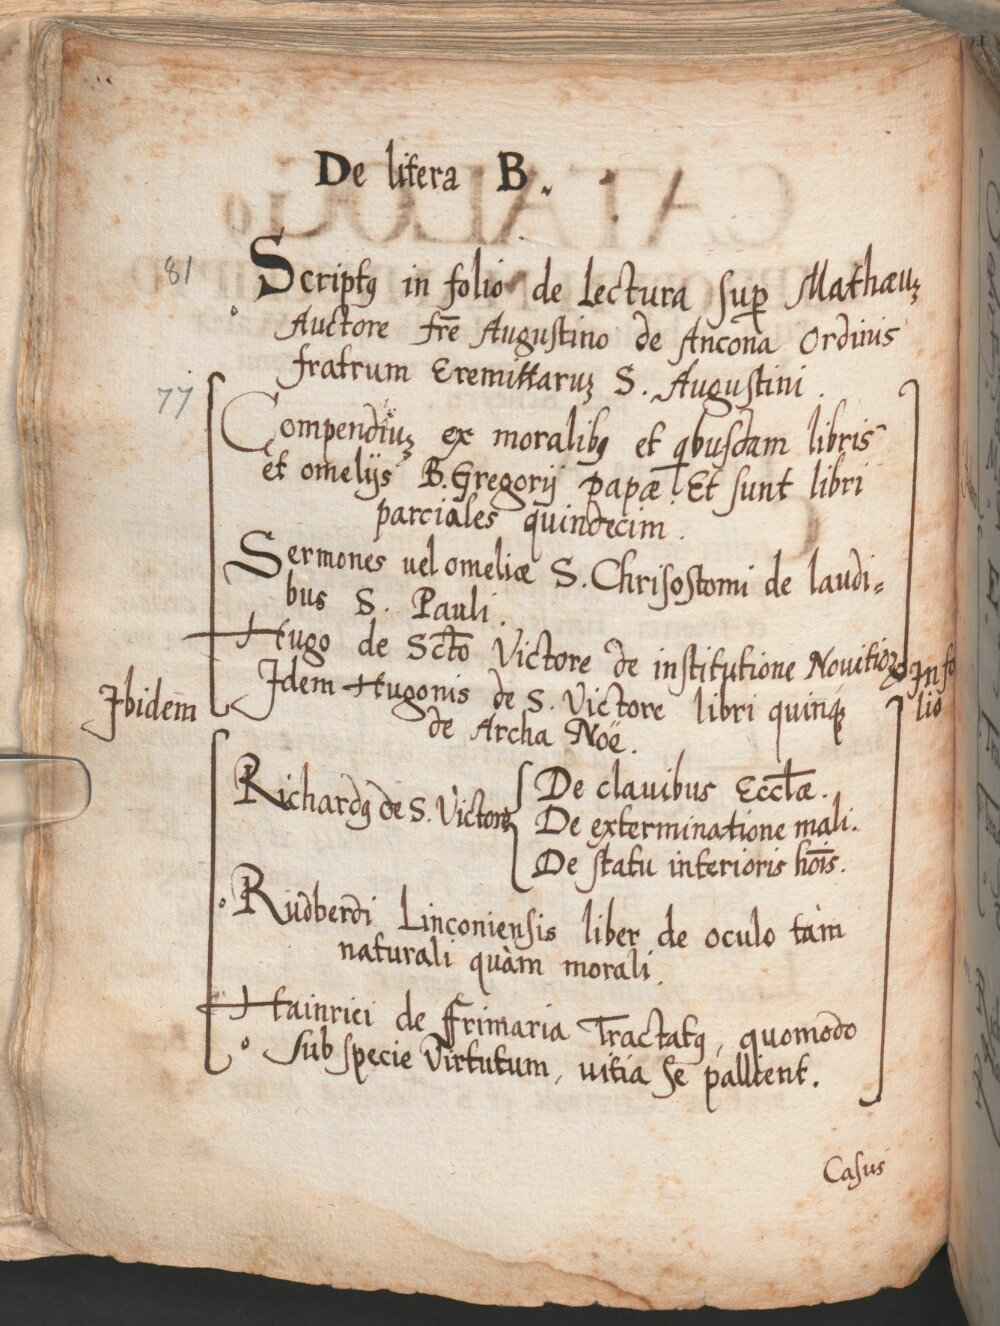 De litera B.
81
Scriptꝰ in folio de Lectura sup Mathæuȝ
Auctore frē Augustino de Ancona Ordinis
fratrum Eremittaruȝ S. Augustini.
77
Compendiuȝ ex moralibꝰ et qbusdam libris
et omelijs B. Gregorij papæ. Et sunt libri
parciales quindecim.
Sermones uel omeliæ S. Chrisostomi de laudi=
bus S. Pauli.
Hugo de Sctō Victore de institutione Novitioꝝ
In fo
lio
Ibidem
Idem Hugonis de S. Victore libri quinqꝫ
de Archa Noë.
Richardꝰ de S. Victore
De clauibus Ecclæ.
De exterminatione mali.
De statu interioris hōis.
Rudberdi Linconiensis liber de oculo tàm
naturali quàm morali.
Hainrici de frimaria Tractatꝰ, quomodo
sub specie Virtutum, uitia se pallient.
Casus